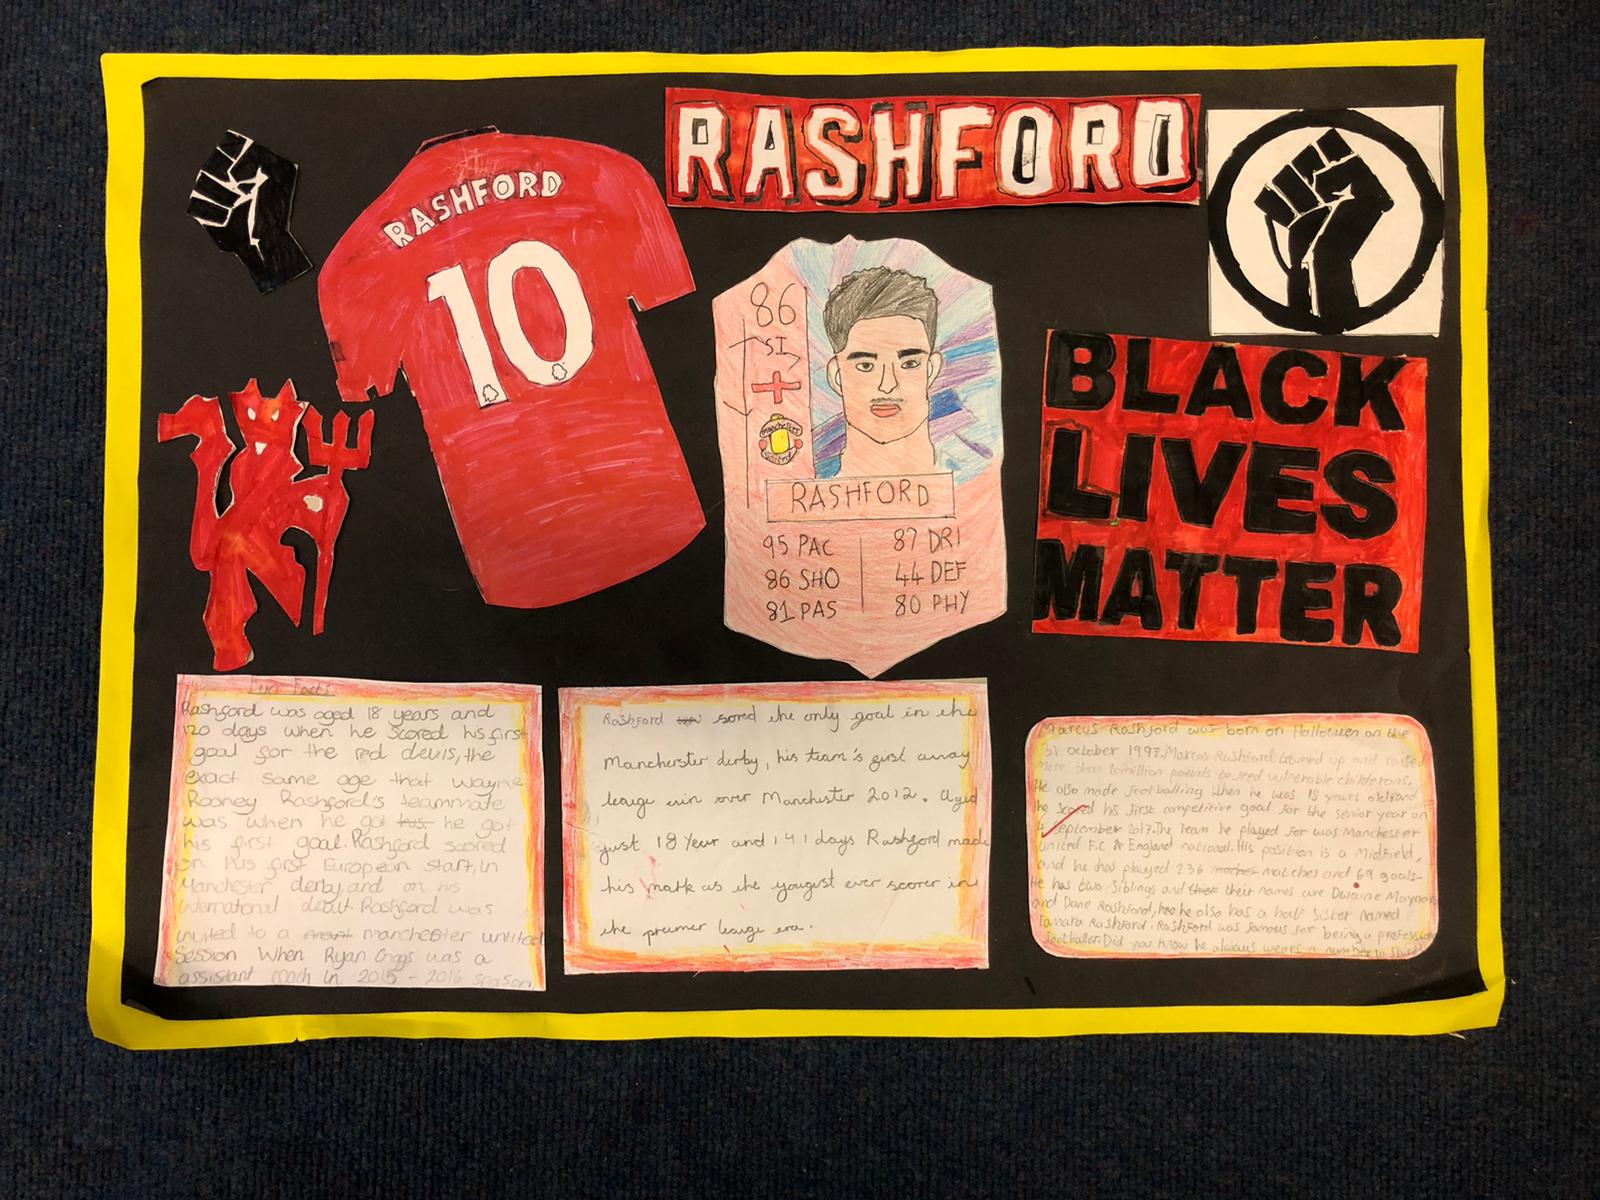 RASHFORD
RASHFORD
10
86
ST
manchester
united
RASHFORD
95 PAC
86 SHO
81 PAS
87 DRI
44 DEF
80 PHY
BLACK
LIVES
MATTER
Facts
Rashford was aged 18 years and
120 days when he scored his first
goal for the red devils, the
exact same age that Wayne
Rooney Rashford's teammate
was when he got his he got
his first goal. Rashford scored
on his first European start, in
Manchester derby, and on his
international debut. Rashford was
invited to a manchester united
Session When Ryan Giggs was a
assistant coach in 2015 - 2016 season.
Rashford sored the only goal in the
Mancherster derby, his team's first away
league win over Manchester 2012. Aged
just 18 Year and 141 days Rashford made
his mark as the yougest ever scorer in
the premer league era.
Marcus Rashford was born on Hallowen on the
31 october 1997. Marcus Rashford teamed up and raised
more than 20 million pounds to feed vulnerable childerens.
He also made footballing when he was 18 years old and
he scored his first competitive goal for the senior year on
4 September 2017. The team he played for was Manchester
united F.C & England national. His position is a Midfield,
and he has played 236 matches and 69 goals.
He has two siblings and their names are Dwaine Maynard
and Dane Rashford, he also has a half sister named
Tamara Rashford. Rashford was famous for being a profession
footballer. Did you know he always wears a number 10 shirt